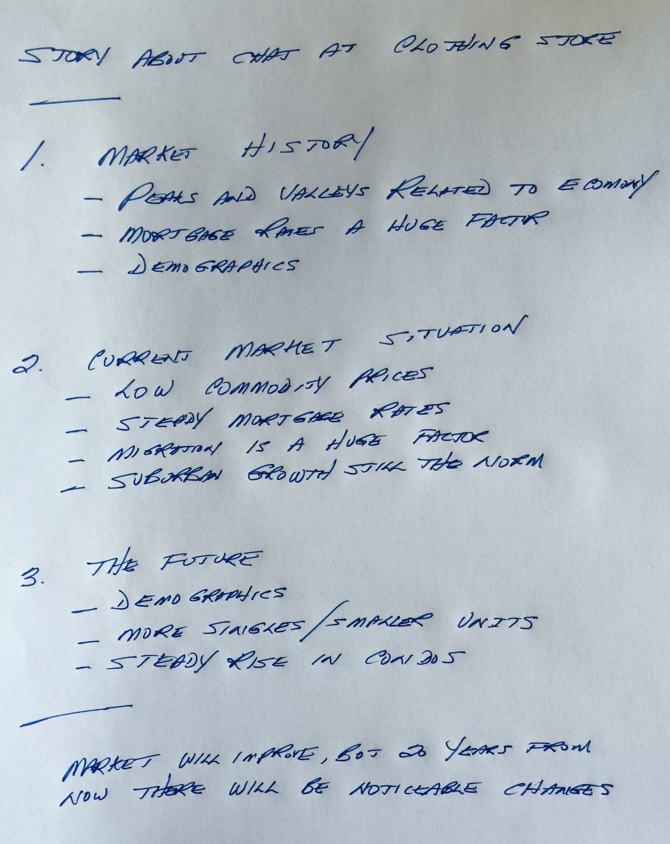 STORY ABOUT CHAT AT CLOTHING STORE
1. MARKET HISTORY
- PEAKS AND VALLEYS RELATED TO ECONOMY
- MORTGAGE RATES A HUGE FACTOR
- DEMOGRAPHICS
2. CURRENT MARKET SITUATION
- LOW COMMODITY PRICES
- STEADY MORTGAGE RATES
- MIGRATION IS A HUGE FACTOR
- SUBURBAN GROWTH STILL THE NORM
3. THE FUTURE
- DEMOGRAPHICS
- MORE SINGLES/SMALLER UNITS
- STEADY RISE IN CONDOS
MARKET WILL IMPROVE, BUT 20 YEARS FROM
NOW THERE WILL BE NOTICEABLE CHANGES